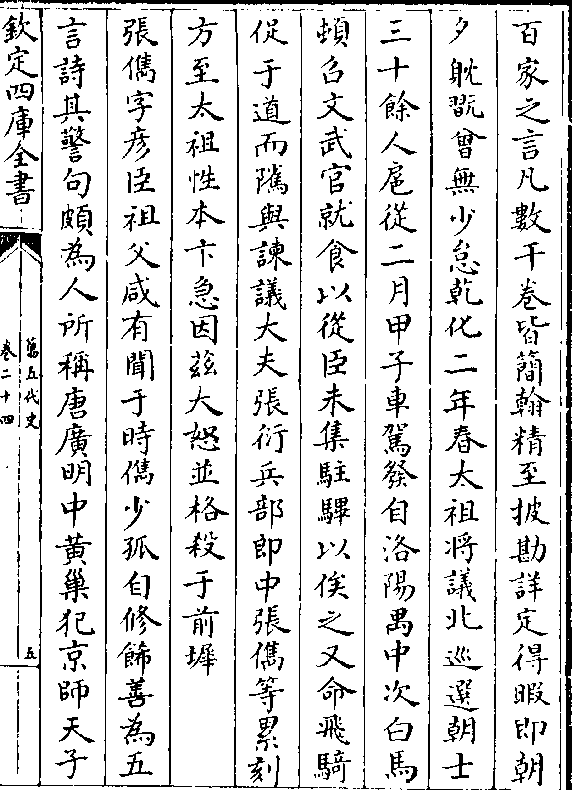 百家之言凡數千卷皆簡翰精至披勘詳定得暇即朝
夕躭翫曾無少怠乾化二年春太祖将議北廵選朝士
三十餘人扈從二月甲子車駕發自洛陽禺中次白馬
頓召文武官就食以從臣未集駐驆以俟之又命飛騎
促于道而隲與諫議大夫張衍兵部郎中張儁等累刻
方至太祖性本卞急因兹大怒並格殺于前墀
張儁字彦臣祖父咸有聞于時儁少孤自修飾善為五
言詩其警句頗為人所稱唐廣明中黄巢犯京師天子
欽定四庫全書
舊五代史
卷二十四
五